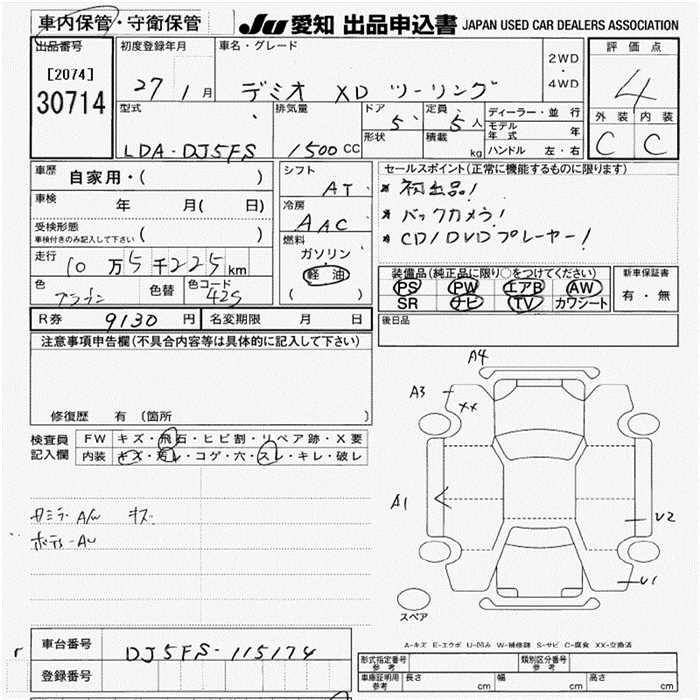 車内保管・守衛保管
JU 愛知 出品申込書 JAPAN USED CAR DEALERS ASSOCIATION
出品番号 [2074] 30714
初度登録年月 27 1 月
車名・グレード デミオ XD ツーリング
2WD・4WD
評価点 4
外装 内装
C C
型式 LDA-DJ5FS
排気量 1500 CC
ドア 5
形状
定員 5 人
積載 kg
ディーラー・並 行
モデル年式 年
ハンドル 左・右
車歴 自家用・( )
車検 年 月( 日)
受検形態 ( )
車検付きのみ記入して下さい
走行 10 万 5 千 225 km
色
色替
色コード 42S
シフト AT
冷房 AAC
燃料
ガソリン
軽 油
( )
セールスポイント(正常に機能するものに限ります)
初出品!
バックカメラ!
CD/DVDプレーヤー!
装備品(純正品に限り○をつけてください)
PS PW エアB AW
SR ナビ TV カワシート
新車保証書
有・無
R券 9130 円
名変期限 月 日
後日品
注意事項申告欄(不具合内容等は具体的に記入して下さい)
修復歴 有 (箇所 )
検査員記入欄
FW キズ・飛石・ヒビ割・リペア跡・X要
内装 キズ・汚レ・コゲ・穴・スレ・キレ・破レ
A/W キズ
A4
A3
XX
A1
U2
U1
スペア
A-キズ E-エクボ U-凹み W-補修跡 S-サビ C-腐食 XX-交換済
車台番号 DJ5FS-115174
登録番号
形式指定番号 参考
類別区分番号 参考
車庫証明用 参考 長さ cm 幅 cm 高さ cm